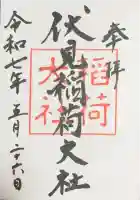 奉拝
伏見稲荷大社
稲荷
大社
令和七年五月二十六日